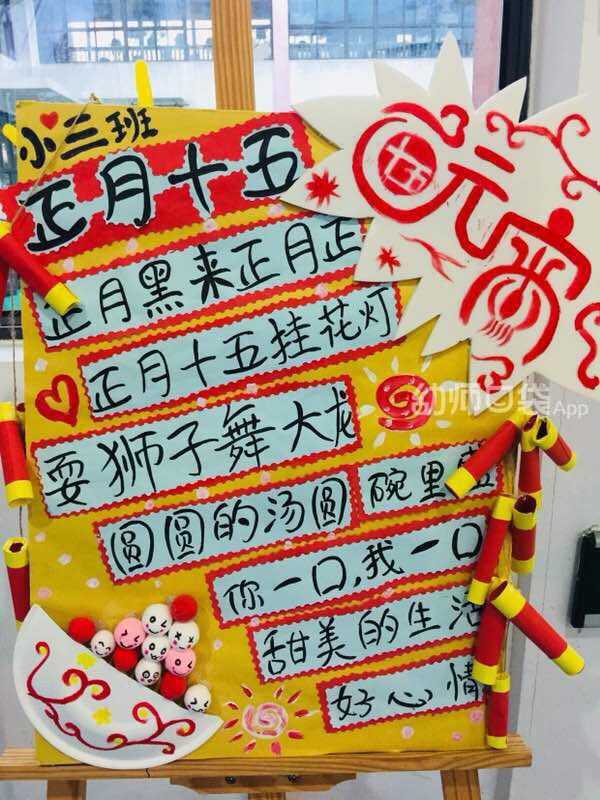 小三班
正月十五
十五
元宵
正月黑来正月正
正月十五挂花灯
耍狮子舞大龙
圆圆的汤圆 碗里
你一口,我一口
甜美的生活
好心情
幼师口袋App